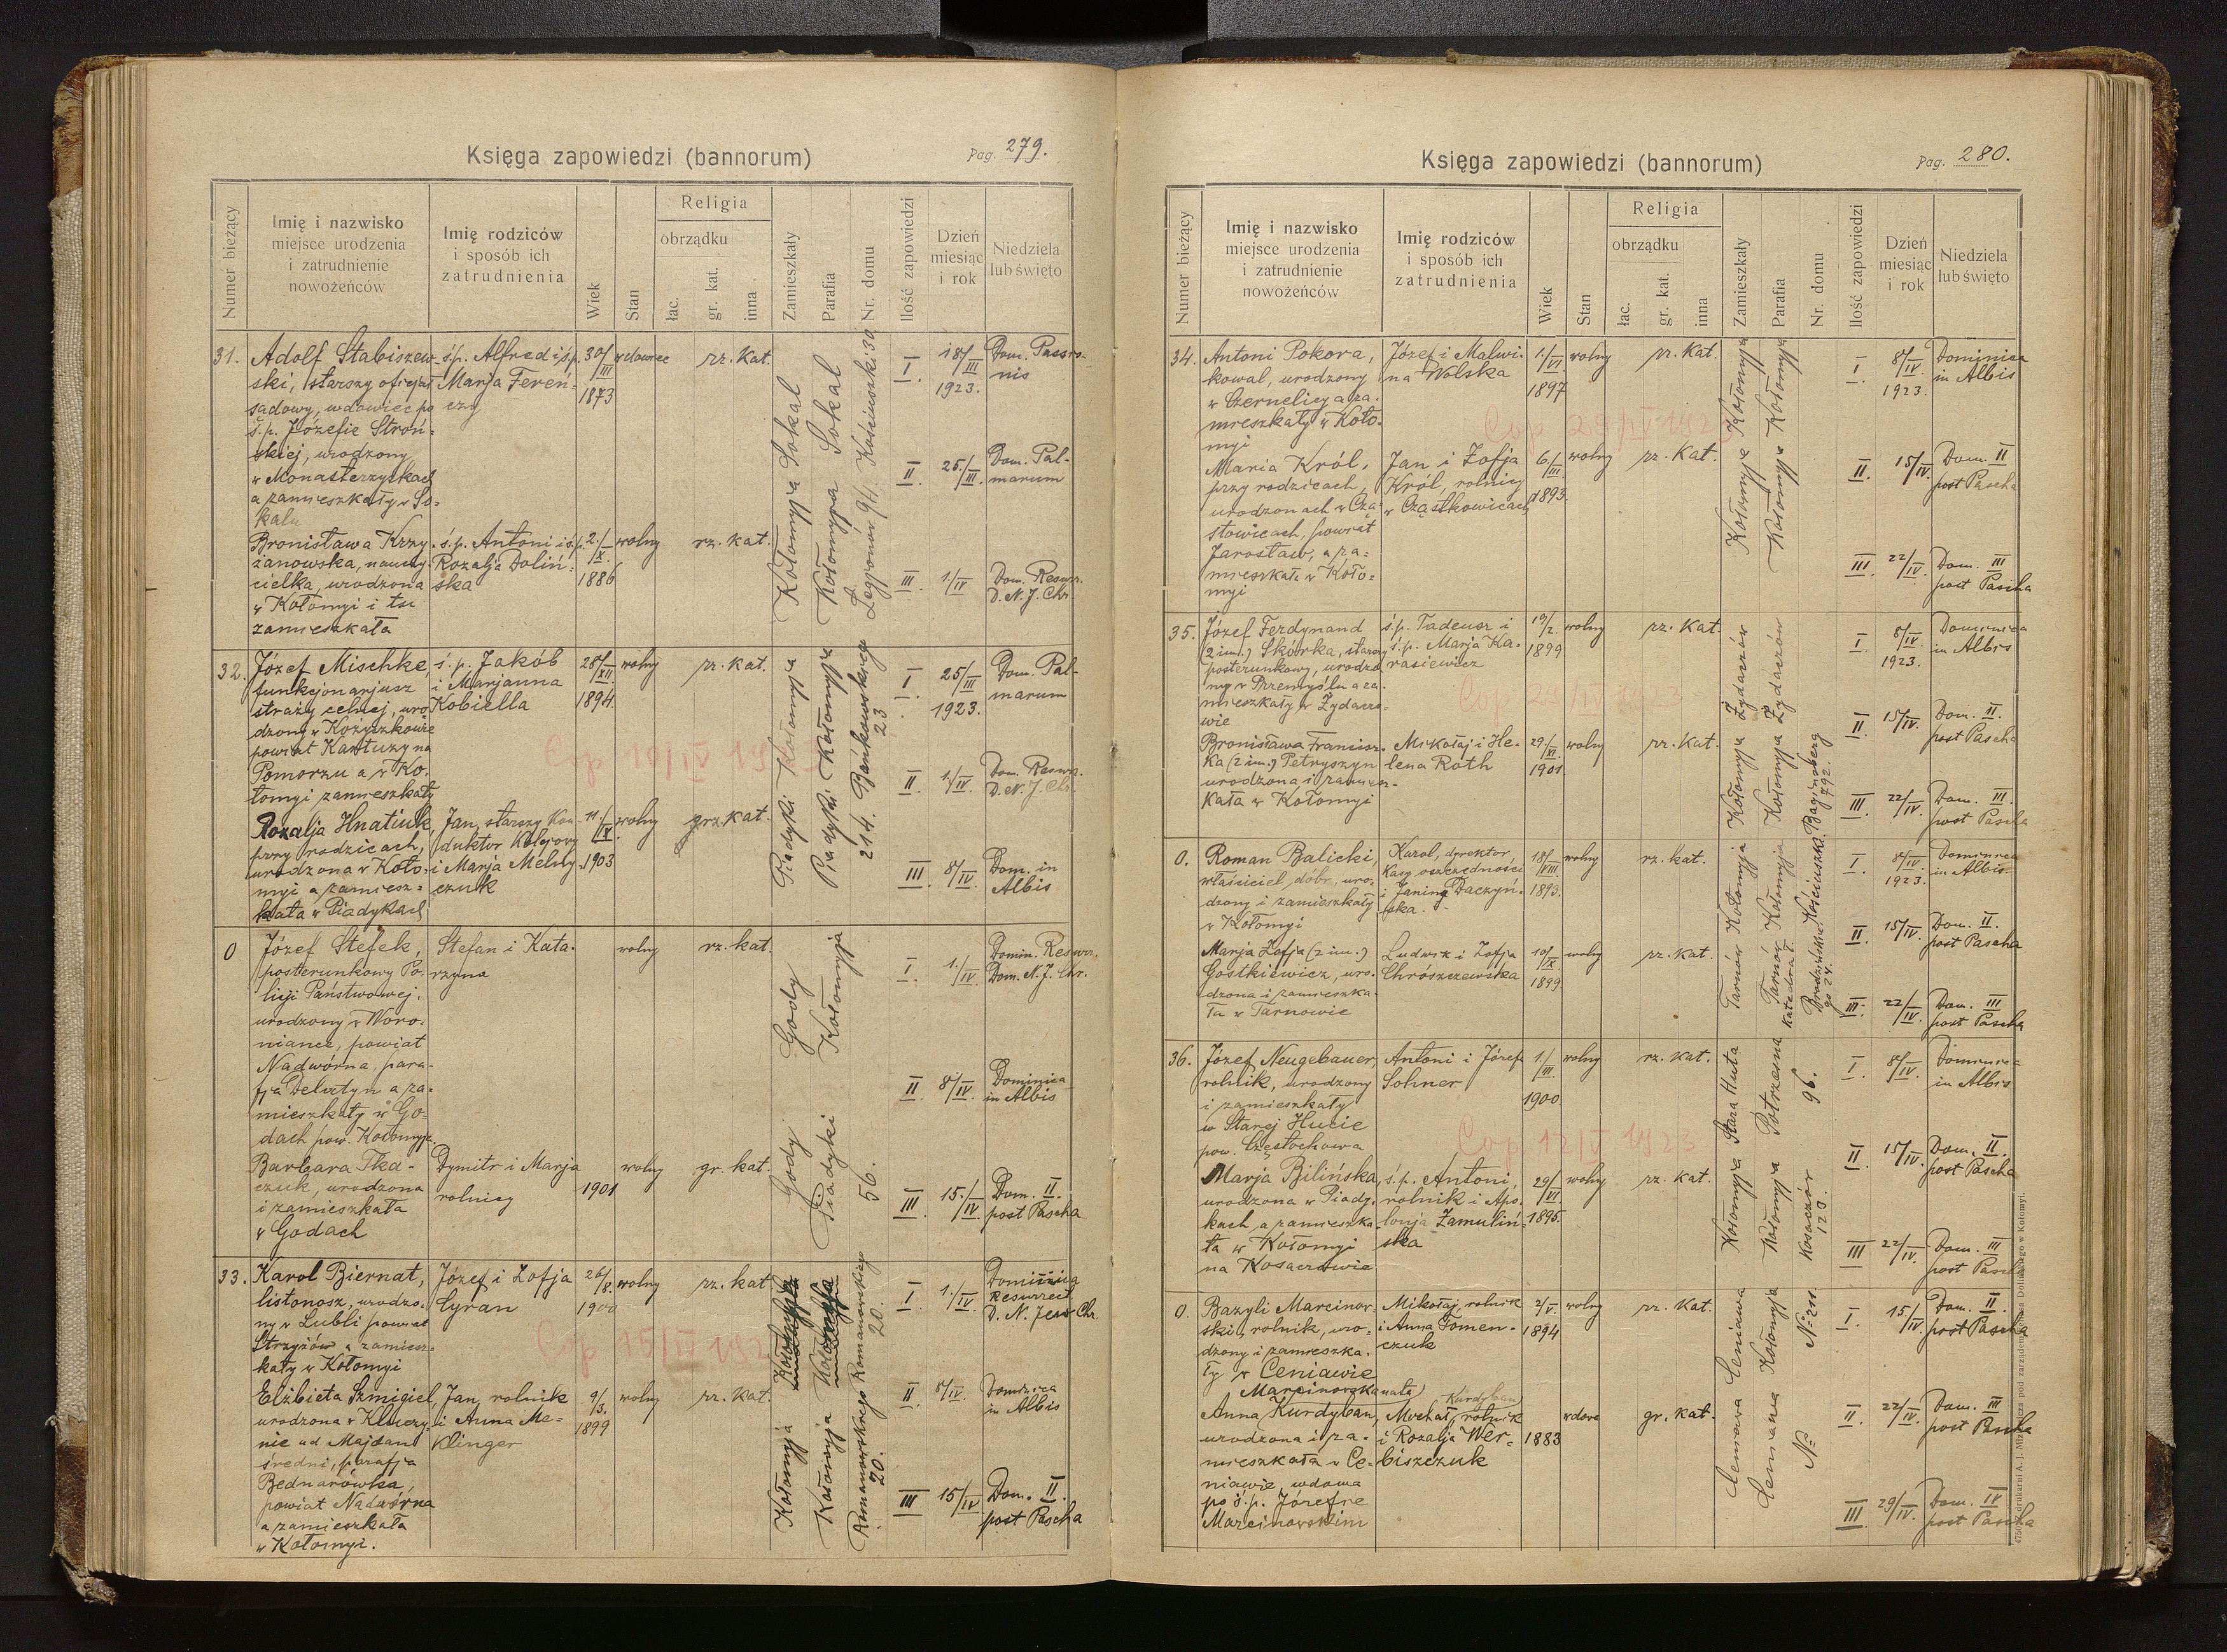 Księga zapowiedzi (bannorum)
Pag. 279.
Numer bieżący
Imię i nazwisko
miejsce urodzenia
i zatrudnienie
nowożeńców
Imię rodziców
i sposób ich
zatrudnienia
Wiek
Stan
Religia
obrządku
łac.
gr. kat.
inna
Zamieszkały
Parafia
Nr. domu
Ilość zapowiedzi
Dzień
miesiąc
i rok
Niedziela
lub święto
31.
Adolf Stabiszew-
ski, starszy oficjał
sądowy, wdowiec po
ś.p. Józefie Stroń-
skiej, urodzony
w Monasterzyskach
a zamieszkały w So-
kalu
ś.p. Alfred i ś.p.
Marja Fereń-
czy
30/III
1873
wdowiec
rz. kat.
Kołomyja Sokal
Kołomyja Sokal
Legjonów 94. Kościuszki 30
I.
18/III
1923.
Dom. Passio-
nis
II.
25./III.
Dom. Pal-
marum
Bronisława Krzy-
żanowska, nauczy-
cielka, urodzona
w Kołomyi i tu
zamieszkała
ś.p. Antoni i ś.p.
Rozalja Doliń-
ska
2./X.
1886
wolny
rz. kat.
III.
1./IV
Dom. Resurr.
D. N. J. Chr.
32.
Józef Mischke,
funkcjonarjusz
straży celnej, uro-
dzony w Kożyczkowie
powiat Kartuzy na
Pomorzu a w Ko-
łomyi zamieszkały
ś.p. Jakób
i Marjanna
Kobiella
28/XII
1894.
wolny
rz. kat.
Piadyki Kołomyja
Piadyki Kołomyja
214. Bańkowskiego
23
I.
25/III
1923.
Dom. Pal-
marum
Cop 10/IV 19
II.
1./IV.
Dom. Resurr.
D. N. J. Ch.
Rozalja Hnatiuk,
przy rodzicach,
urodzona w Koło-
myi a zamiesz-
kała w Piadykach
Jan, starszy kon-
duktor kolejowy
i Marja Melny-
czuk
11./IX.
1903
wolny
grz. kat.
III.
8/IV.
Dom. in
Albis
0
Józef Stefek,
posterunkowy Po-
licji Państwowej,
urodzony w Woro-
niance, powiat
Nadwórna, para-
fja Delatyn a za-
mieszkały w Go-
dach pow. Kołomyja.
Stefan i Kata-
rzyna
wolny
rz. kat.
Gody Gody
Piadyki Kołomyja
56.
I.
1./IV.
Domin. Resurr.
Dom. N. J. Chr.
II.
8/IV.
Dominica
in Albis
Barbara Tka-
czuk, urodzona
i zamieszkała
w Godach
Dymitr i Marja
rolnicy
1901
wolny
gr. kat.
III.
15./IV.
Dom. II.
post Pascha
33.
Karol Biernat,
listonosz, urodzo-
ny w Lubli powiat
Strzyżów a zamiesz-
kały w Kołomyi
Józef i Zofja
Cyran
26/8.
1900
wolny
rz. kat.
Kołomyja Kołomyja
Kołomyja Kołomyja
Romanowskiego Romanowskiego
20. 20.
I.
1./IV.
Dominica
Resurrect.
D. N. Jesu Chr.
Cop 15/IV 192
Elżbieta Szmigiel,
urodzona w Kluczy-
nie ad Majdan
średni, parafja
Bednarówka,
powiat Nadwórna
a zamieszkała
w Kołomyi.
Jan, rolnik
i Anna Me-
klinger
9/3.
1899
wolny
rz. kat.
II.
8/IV.
Dominica
in Albis
III.
15/IV
Dom. II.
post Pascha
Księga zapowiedzi (bannorum)
Pag. 280.
Numer bieżący
Imię i nazwisko
miejsce urodzenia
i zatrudnienie
nowożeńców
Imię rodziców
i sposób ich
zatrudnienia
Wiek
Stan
Religia
obrządku
łac.
gr. kat.
inna
Zamieszkały
Parafia
Nr. domu
Ilość zapowiedzi
Dzień
miesiąc
i rok
Niedziela
lub święto
34.
Antoni Pokora,
kowal, urodzony
w Czernelicy a za-
mieszkały w Koło-
myi
Józef i Malwi-
na Wolska
1./VI
1897
wolny
rz. kat.
Kołomyja Kołomyja
Kołomyja Kołomyja
I.
8/IV.
1923.
Dominica
in Albis
Cop 29/IV 192
Maria Król,
przy rodzicach,
urodzonach w Czą-
stowicach, powiat
Jarosław, a za-
mieszkała w Koło-
myi
Jan i Zofja
Król, rolnicy
w Cząstkowicach
6./III.
1893.
wolny
rz. kat.
II.
15/IV.
Dom. II
post Pascha
III.
22/IV.
Dom. III
post Pascha
35.
Józef Ferdynand
(2 im.) Skórka, starszy
posterunkowy, urodzo-
ny w Przemyślu a za-
mieszkały w Żydaczo-
wie
ś.p. Tadeusz i
ś.p. Marja Ka-
rasiewicz
19/2.
1899
wolny
rz. kat.
Kołomyja Żydaczów
Kołomyja Żydaczów
Baginsberg
792.
I.
8/IV.
1923.
Dominica
in Albis
Cop
Bronisława Francisz-
ka (2 im.) Petryszyn
urodzona i zamiesz-
kała w Kołomyi
Mikołaj i He-
lena Roth
1901.
wolny
rz. kat.
II.
15/IV.
Dom. II.
post Pascha
III.
22/IV.
Dom. III.
post Pascha
0.
Roman Balicki,
właściciel dóbr, uro-
dzony i zamieszkały
w Kołomyi
Karol, dyrektor
Kasy oszczędności
i Janina Daczyń-
ska.
18/VIII.
1893.
wolny
rz. kat.
Tarnów Kołomyja
Tarnów Kołomyja
Katedra ł.
Kościuszki
go 24.
I.
8/IV.
1923.
Dominica
in Albis
Marja Zofja (2 im.)
Gostkiewicz, uro-
dzona i zamieszka-
ła w Tarnowie
Ludwik i Zofja
Chrószczewska
10/X.
1899
wolny
rz. kat.
II.
15/IV.
Dom. II.
post Pascha
III.
22/IV.
Dom. III
post Pascha
36.
Józef Neugebauer,
rolnik, urodzony
i zamieszkały
w Starej Hucie
pow. Częstochowa
Antoni i Józefa
Solner
1./III.
1900
wolny
rz. kat.
Kołomyja Stara Huta
Kołomyja Potrzena
Kosaczów 96.
123.
I.
8/IV.
Dominica
in Albis
Cop 12/V 1923
Marja Bilińska,
urodzona w Piady-
kach a zamieszka-
ła w Kołomyi
na Kosaczowie
ś.p. Antoni,
rolnik i Apo-
lonja Zamuliń-
ska
29/VI.
1895.
wolny
rz. kat.
II.
15/IV.
Dom. II.
post Pascha
III.
22/IV.
Dom. III
post Pascha
0.
Bazyli Marcinow-
ski, rolnik, uro-
dzony i zamieszka-
ły w Ceniawie
Mikołaj, rolnik
i Anna Tomen-
czuk
2/V.
1894
wolny
rz. kat.
Ceniawa Ceniawa
Ceniawa Kołomyja
№ №211.
I.
15/IV.
Dom. II.
post Pascha
Marcinowska nata)
Anna Kurdyban,
urodzona i za-
mieszkała w Ce-
niawie, wdowa
po ś.p. Józefie
Marcinowskim
Kurdyban
Michał, rolnik
i Rozalja Wer-
biszczuk
1883
wdowa
gr. kat.
II.
22/IV.
Dom. III
post Pascha
III.
29/IV.
Dom. IV
post Pascha